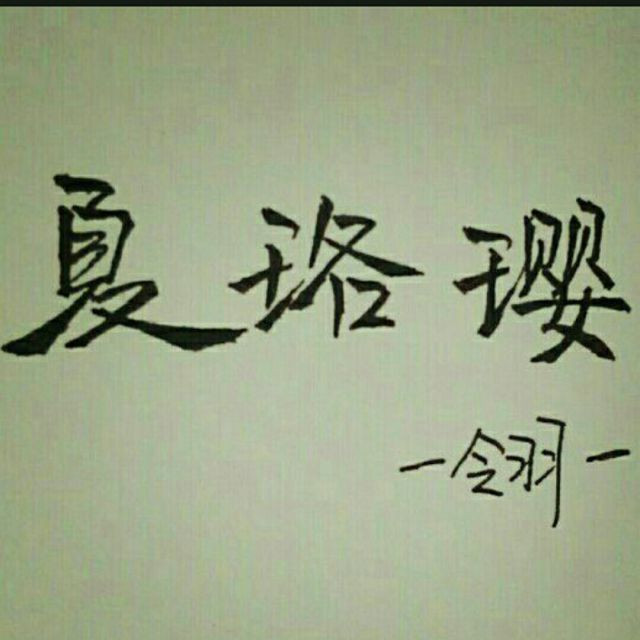 夏珞璎
-令羽-